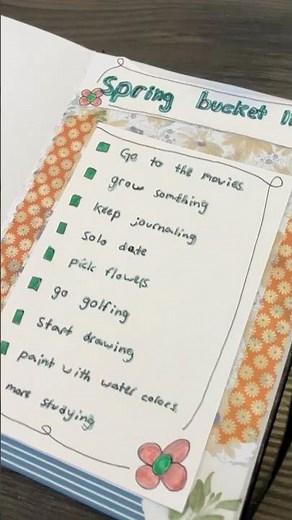 Spring bucket li
Go to the movies
grow somthing
keep journaling
solo date
pick flowers
go golfing
start drawing
paint with water colors
more studying